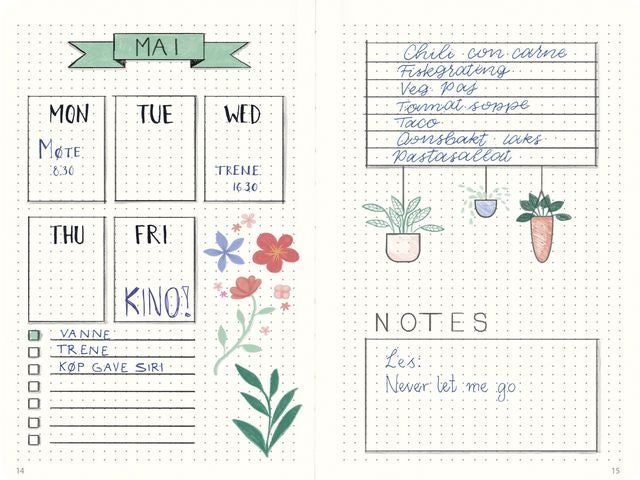 MAI
MON
MØTE
8.30
TUE
WED
TRENE
16.30
THU
FRI
KINO!
VANNE
TRENE
KØP GAVE SIRI
14
Chili con carne
Fiskegrateng
Veg. pas
Tomat soppe
Taco.
Ovnsbakt laks
Pastasallad
NOTES
Les:
Never let me go
15